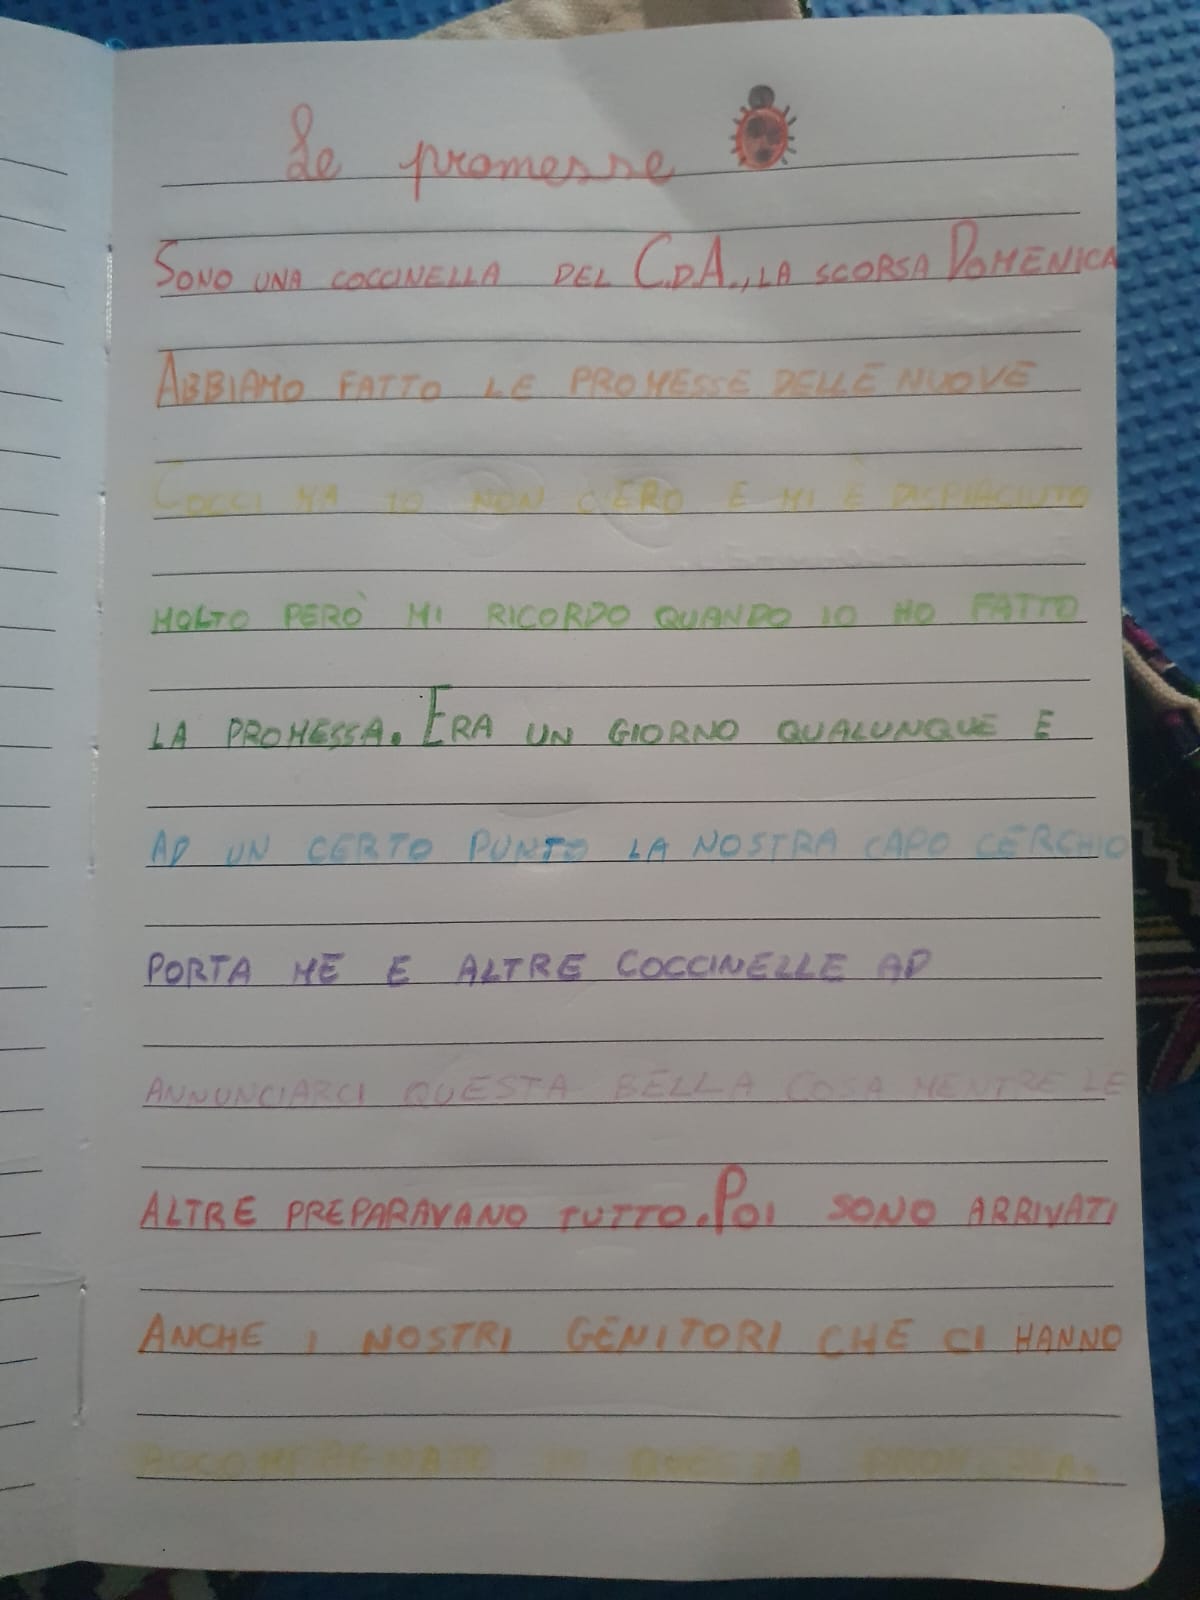 Le promesse
SONO UNA COCCINELLA DEL C.D.A., LA SCORSA DOMENICA
ABBIAMO FATTO LE PROMESSE DELLE NUOVE
COCCI MA IO NON C'ERO E MI È DISPIACIUTO
MOLTO PERÒ MI RICORDO QUANDO IO HO FATTO
LA PROMESSA. ERA UN GIORNO QUALUNQUE E
AD UN CERTO PUNTO LA NOSTRA CAPO CERCHIO
PORTA ME E ALTRE COCCINELLE AD
ANNUNCIARCI QUESTA BELLA COSA MENTRE LE
ALTRE PREPARAVANO TUTTO. POI SONO ARRIVATI
ANCHE I NOSTRI GENITORI CHE CI HANNO
IN QUESTA